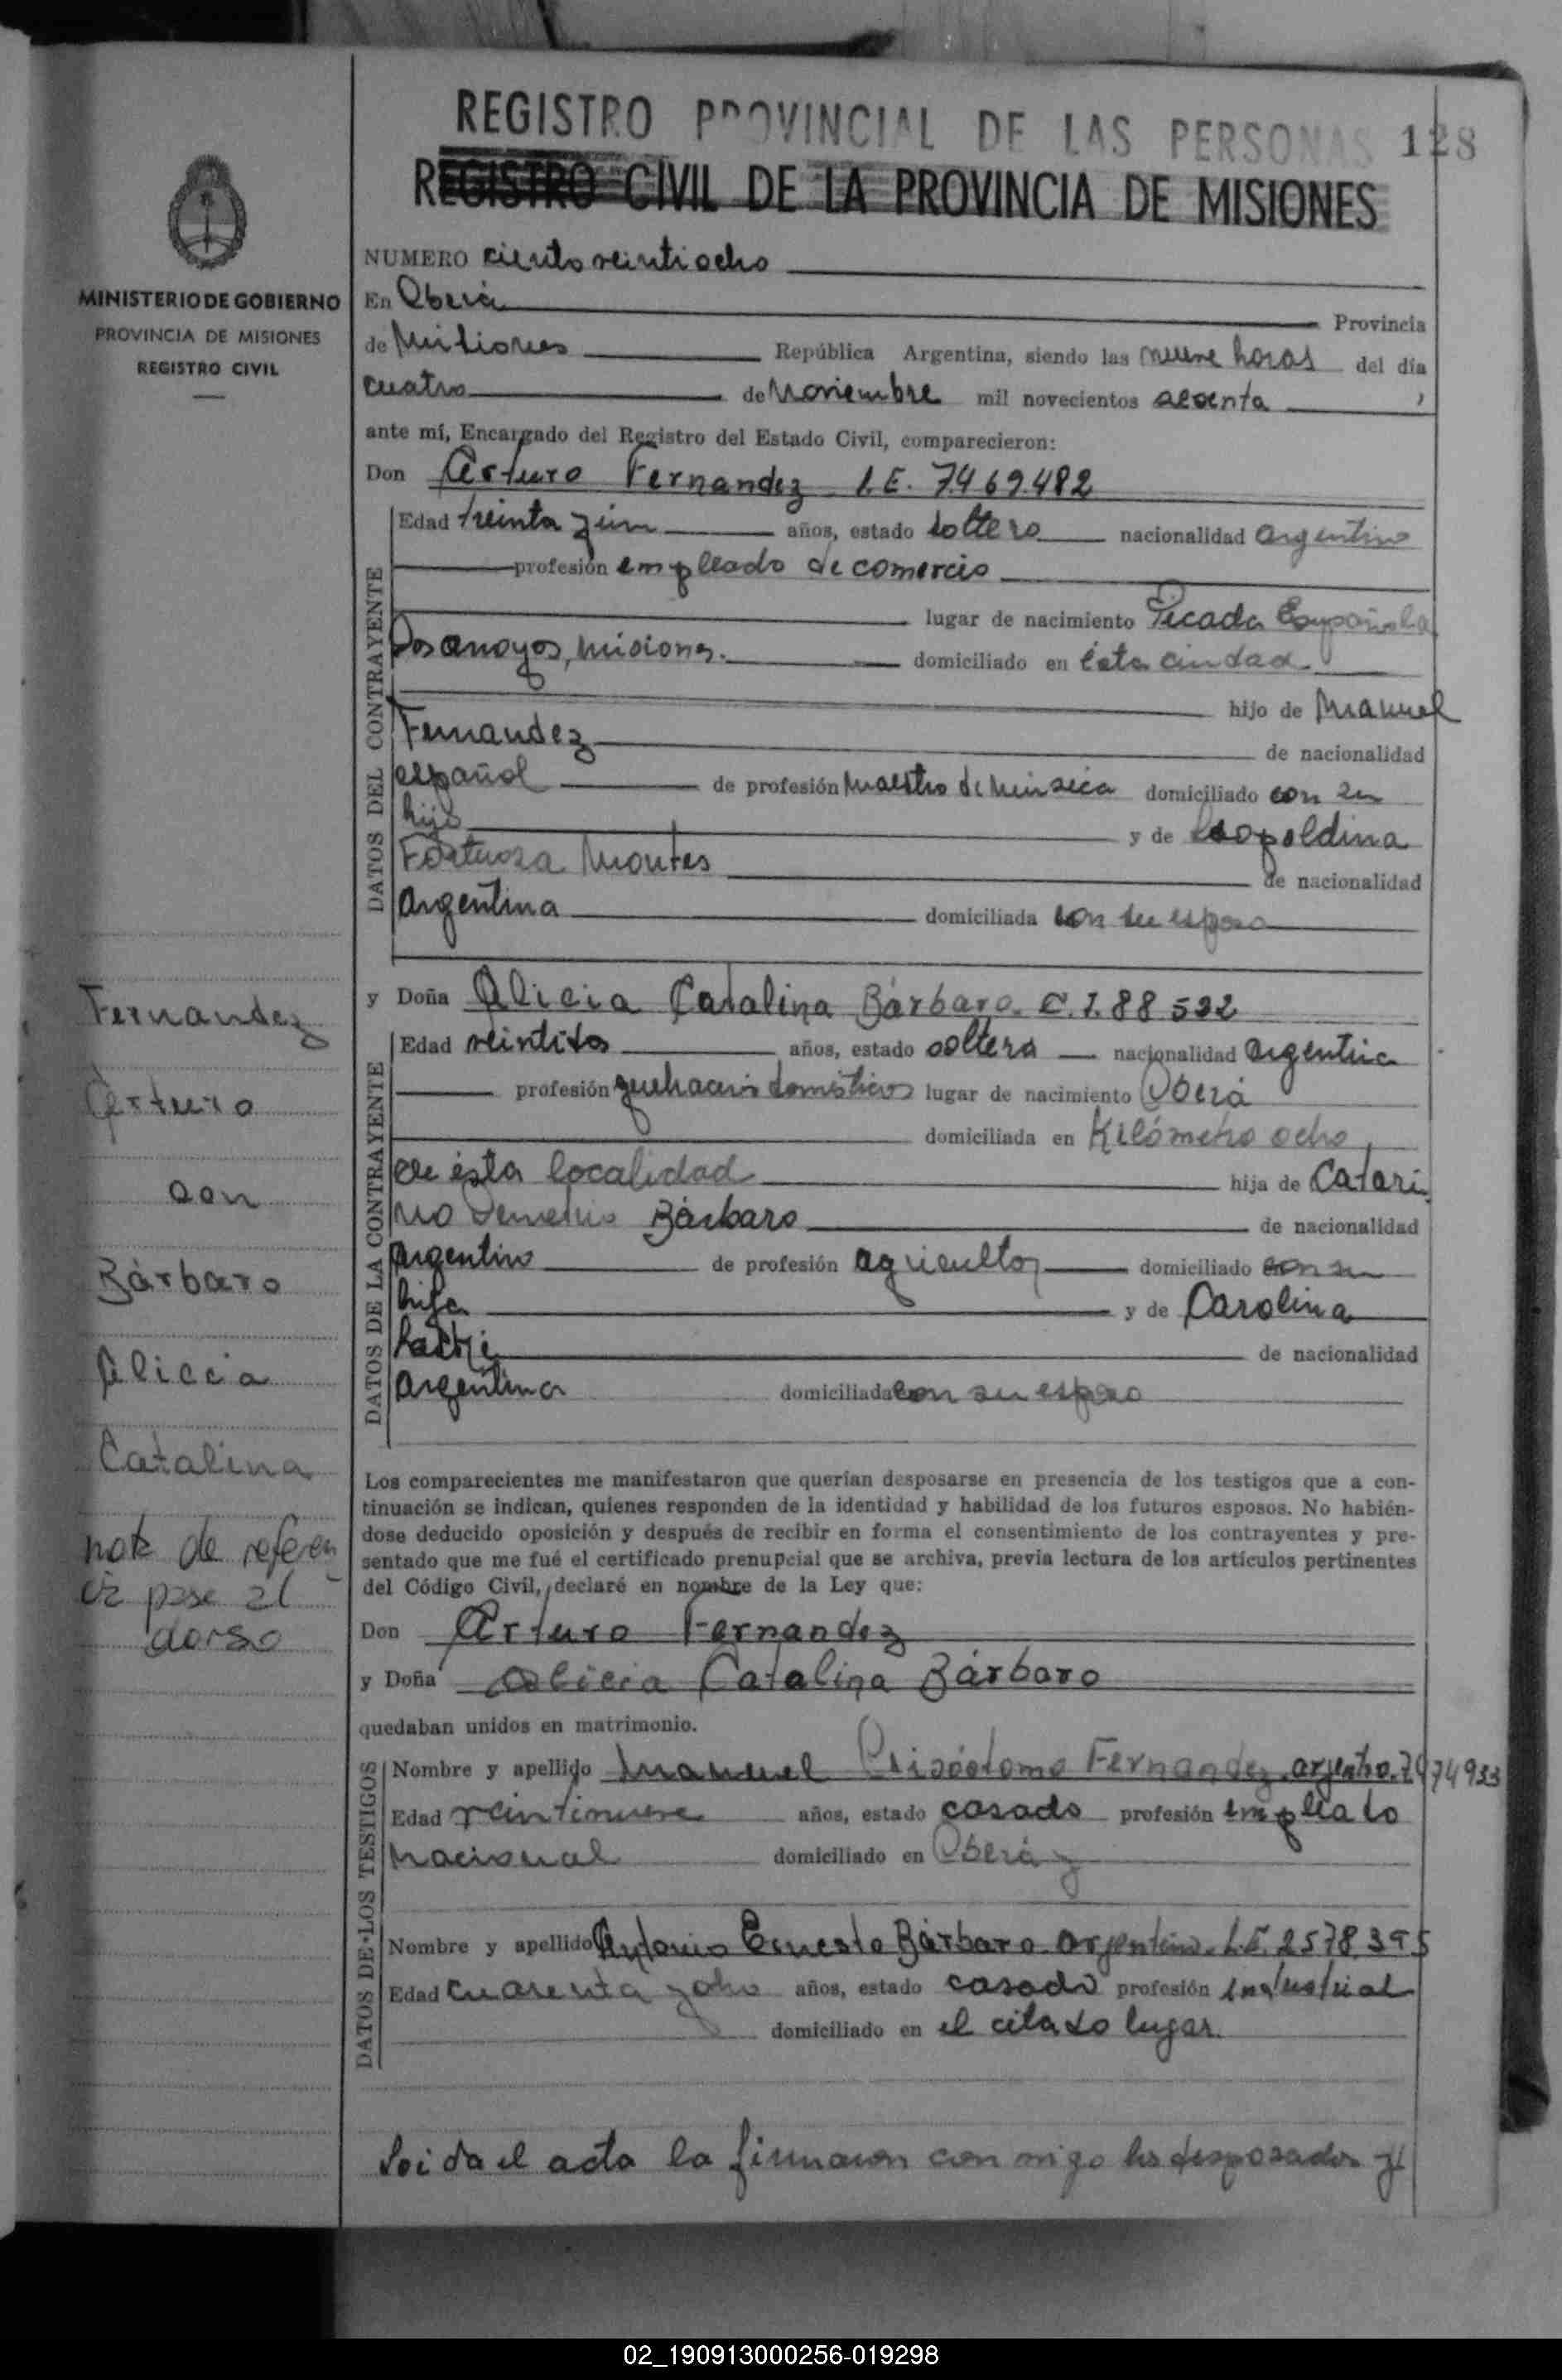 REGISTRO PROVINCIAL DE LAS PERSONAS 128
REGISTRO CIVIL DE LA PROVINCIA DE MISIONES
MINISTERIO DE GOBIERNO
PROVINCIA DE MISIONES
REGISTRO CIVIL
NUMERO ciento veintiocho
En Oberá Provincia
de Misiones República Argentina, siendo las nueve horas del día
cuatro de Noviembre mil novecientos sesenta ,
ante mí, Encargado del Registro del Estado Civil, comparecieron:
Don Arturo Fernandez L.E. 7469482
DATOS DEL CONTRAYENTE
Edad treinta y un años, estado soltero nacionalidad argentino
profesión empleado de comercio
lugar de nacimiento Picada Española
Dos arroyos, misiones. domiciliado en ésta ciudad
hijo de Manuel
Fernandez de nacionalidad
español de profesión Maestro de domiciliado con su
hijo y de Leopoldina
Fortunosa Montes de nacionalidad
argentina domiciliada con su esposo
y Doña Alicia Catalina Bárbaro. C.I. 88 532
DATOS DE LA CONTRAYENTE
Edad veintidos años, estado soltera nacionalidad argentina
profesión quehaceres domésticos lugar de nacimiento Oberá
domiciliada en Kilómetro ocho
de ésta localidad hija de Catari
no Demetrio Bárbaro de nacionalidad
argentino de profesión agricultor domiciliado con su
hija y de Carolina
de nacionalidad
argentina domiciliada con su esposo
Fernandez
Arturo
con
Bárbaro
Alicia
Catalina
nota de referen
cia pase al
dorso
Los comparecientes me manifestaron que querían desposarse en presencia de los testigos que a con-
tinuación se indican, quienes responden de la identidad y habilidad de los futuros esposos. No habién-
dose deducido oposición y después de recibir en forma el consentimiento de los contrayentes y pre-
sentado que me fué el certificado prenupcial que se archiva, previa lectura de los artículos pertinentes
del Código Civil, declaré en nombre de la Ley que:
Don Arturo Fernandez
y Doña Alicia Catalina Bárbaro
quedaban unidos en matrimonio.
DATOS DE LOS TESTIGOS
Nombre y apellido Manuel Crisóstomo Fernandez. argentino. 7474933
Edad veintinueve años, estado casado profesión empleado
Nacional domiciliado en Oberá y
Nombre y apellido Antonio Ernesto Bárbaro. argentino. L.E. 2578395
Edad cuarenta y ocho años, estado casado profesión industrial
domiciliado en el citado lugar.
Leida el acta la firmaron con migo los desposados y
02_190913000256-019298